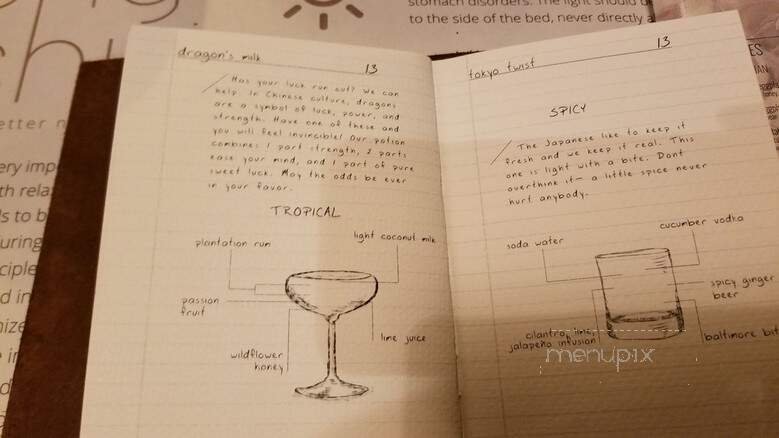 stomach disorders. The light should be
to the side of the bed, never directly a
etter n
ery imp
th relax
ls to b
uring
ciple
d in
nize
dragon's milk 13
Has your luck run out? We can
help. In Chinese culture, dragons
are a symbol of luck, power, and
strength. Have one of these and
you will feel invincible! Our potion
combines 1 part strength, 2 parts
ease your mind, and 1 part of pure
sweet luck. May the odds be ever
in your favor.
TROPICAL
plantation rum
light coconut milk
passion
fruit
lime juice
wildflower
honey
tokyo twist 13
SPICY
The Japanese like to keep it
fresh and we keep it real. This
one is light with a bite. Dont
overthink it— a little spice never
hurt anybody.
soda water
cucumber vodka
spicy ginger
beer
cilantro, lime,
jalapeño infusion
baltimore bit
menupix
ES
IAN